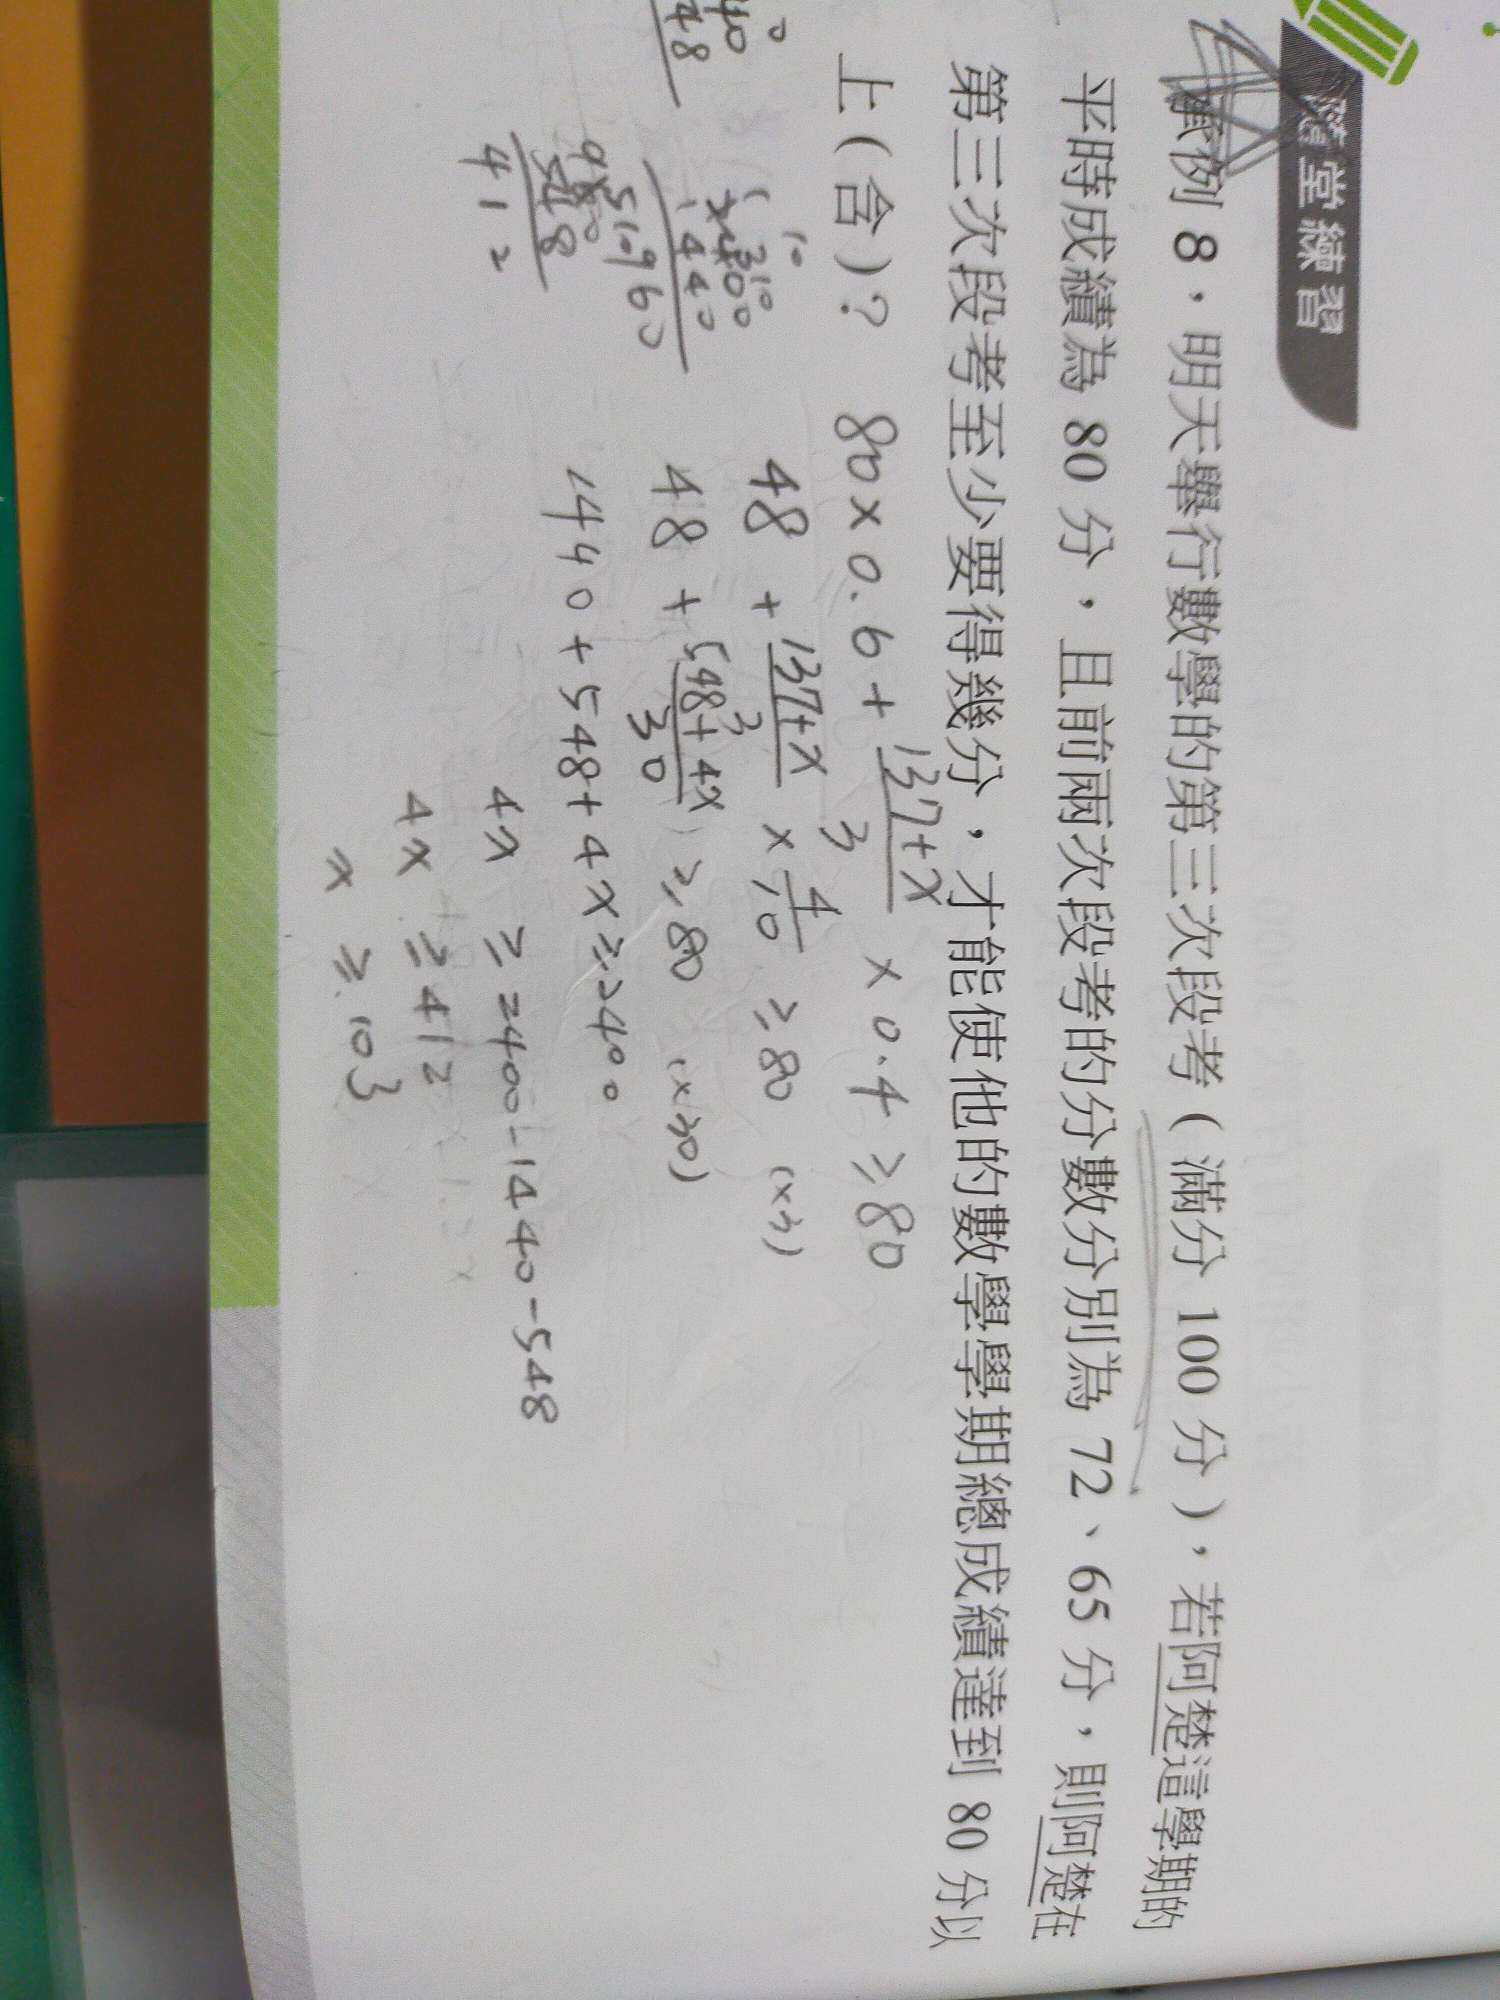 隨堂練習
承例 8，明天舉行數學的第三次段考（滿分 100 分），若阿楚這學期的
平時成績為 80 分，且前兩次段考的分數分別為 72、65 分，則阿楚在
第三次段考至少要得幾分，才能使他的數學學期總成績達到 80 分以
上（含）？
80×0.6+137+x/3×0.4≥80
48+137+x/3×4/10≥80 (×3)
48+548+4x/30)≥80 (×30)
1440+548+4x≥2400
4x≥2400-1440-548
4x≥412
x≥103
2400
1440
960
548
412